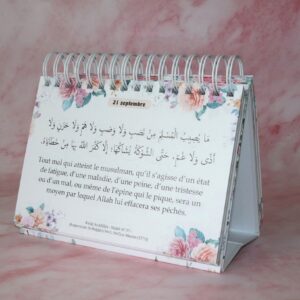 21 septembre
مَا يُصِيبُ الْمُسْلِمَ مِنْ نَصَبٍ وَلَا وَصَبٍ وَلَا هَمٍّ وَلَا حَزَنٍ وَلَا
أَذًى وَلَا غَمٍّ، حَتَّى الشَّوْكَةِ يُشَاكُهَا، إِلَّا كَفَّرَ اللَّهُ بِهَا مِنْ خَطَايَاهُ.
Tout mal qui atteint le musulman, qu'il s'agisse d'un état
de fatigue, d'une maladie, d'une peine, d'une tristesse
ou d'un mal, ou même de l'épine qui le pique, sera un
moyen par lequel Allah lui effacera ses péchés.